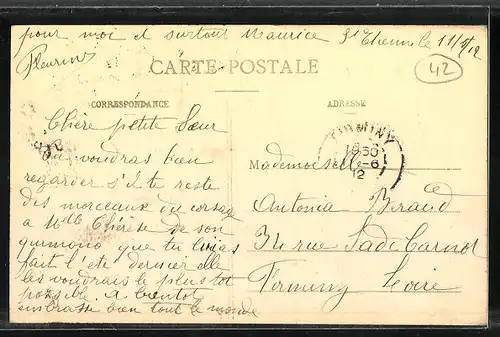 pour moi et surtout Maurice St Etienne le 11/6/12
Fleurine
42
CARTE POSTALE
CORRESPONDANCE
ADRESSE
FIRMINY
18 50
-6
12
Chère petite Sœur
tu voudras bien
regarder s'il te reste
des morceaux du corsage
a Melle Thérèse de son
quimono que tu
fait l'été dernier elle
les voudrais le plus tot
possible. A bientot
embrasse bien tout le monde
Mademoiselle
Antonia Beraud
34 rue Sadi Carnot
Firminy Loire